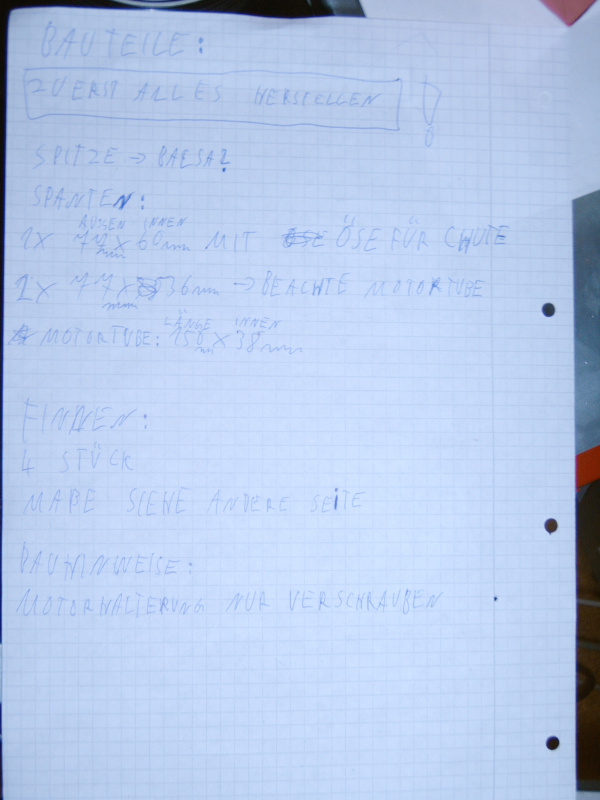 BAUTEILE:
ZUERST ALLES HERSTELLEN !
SPITZE → BALSA?
SPANTEN:
AUßEN INNEN
1X 77 X 60mm MIT ÖSE FÜR CHUTE
mm
2X 77 X 36mm → BEACHTE MOTORTUBE
mm
LÄNGE INNEN
MOTORTUBE: 150 X 38mm
mm
FINNEN:
4 STÜCK
MAßE SIEHE ANDERE SEITE
BAUHINWEISE:
MOTORHALTERUNG NUR VERSCHRAUBEN